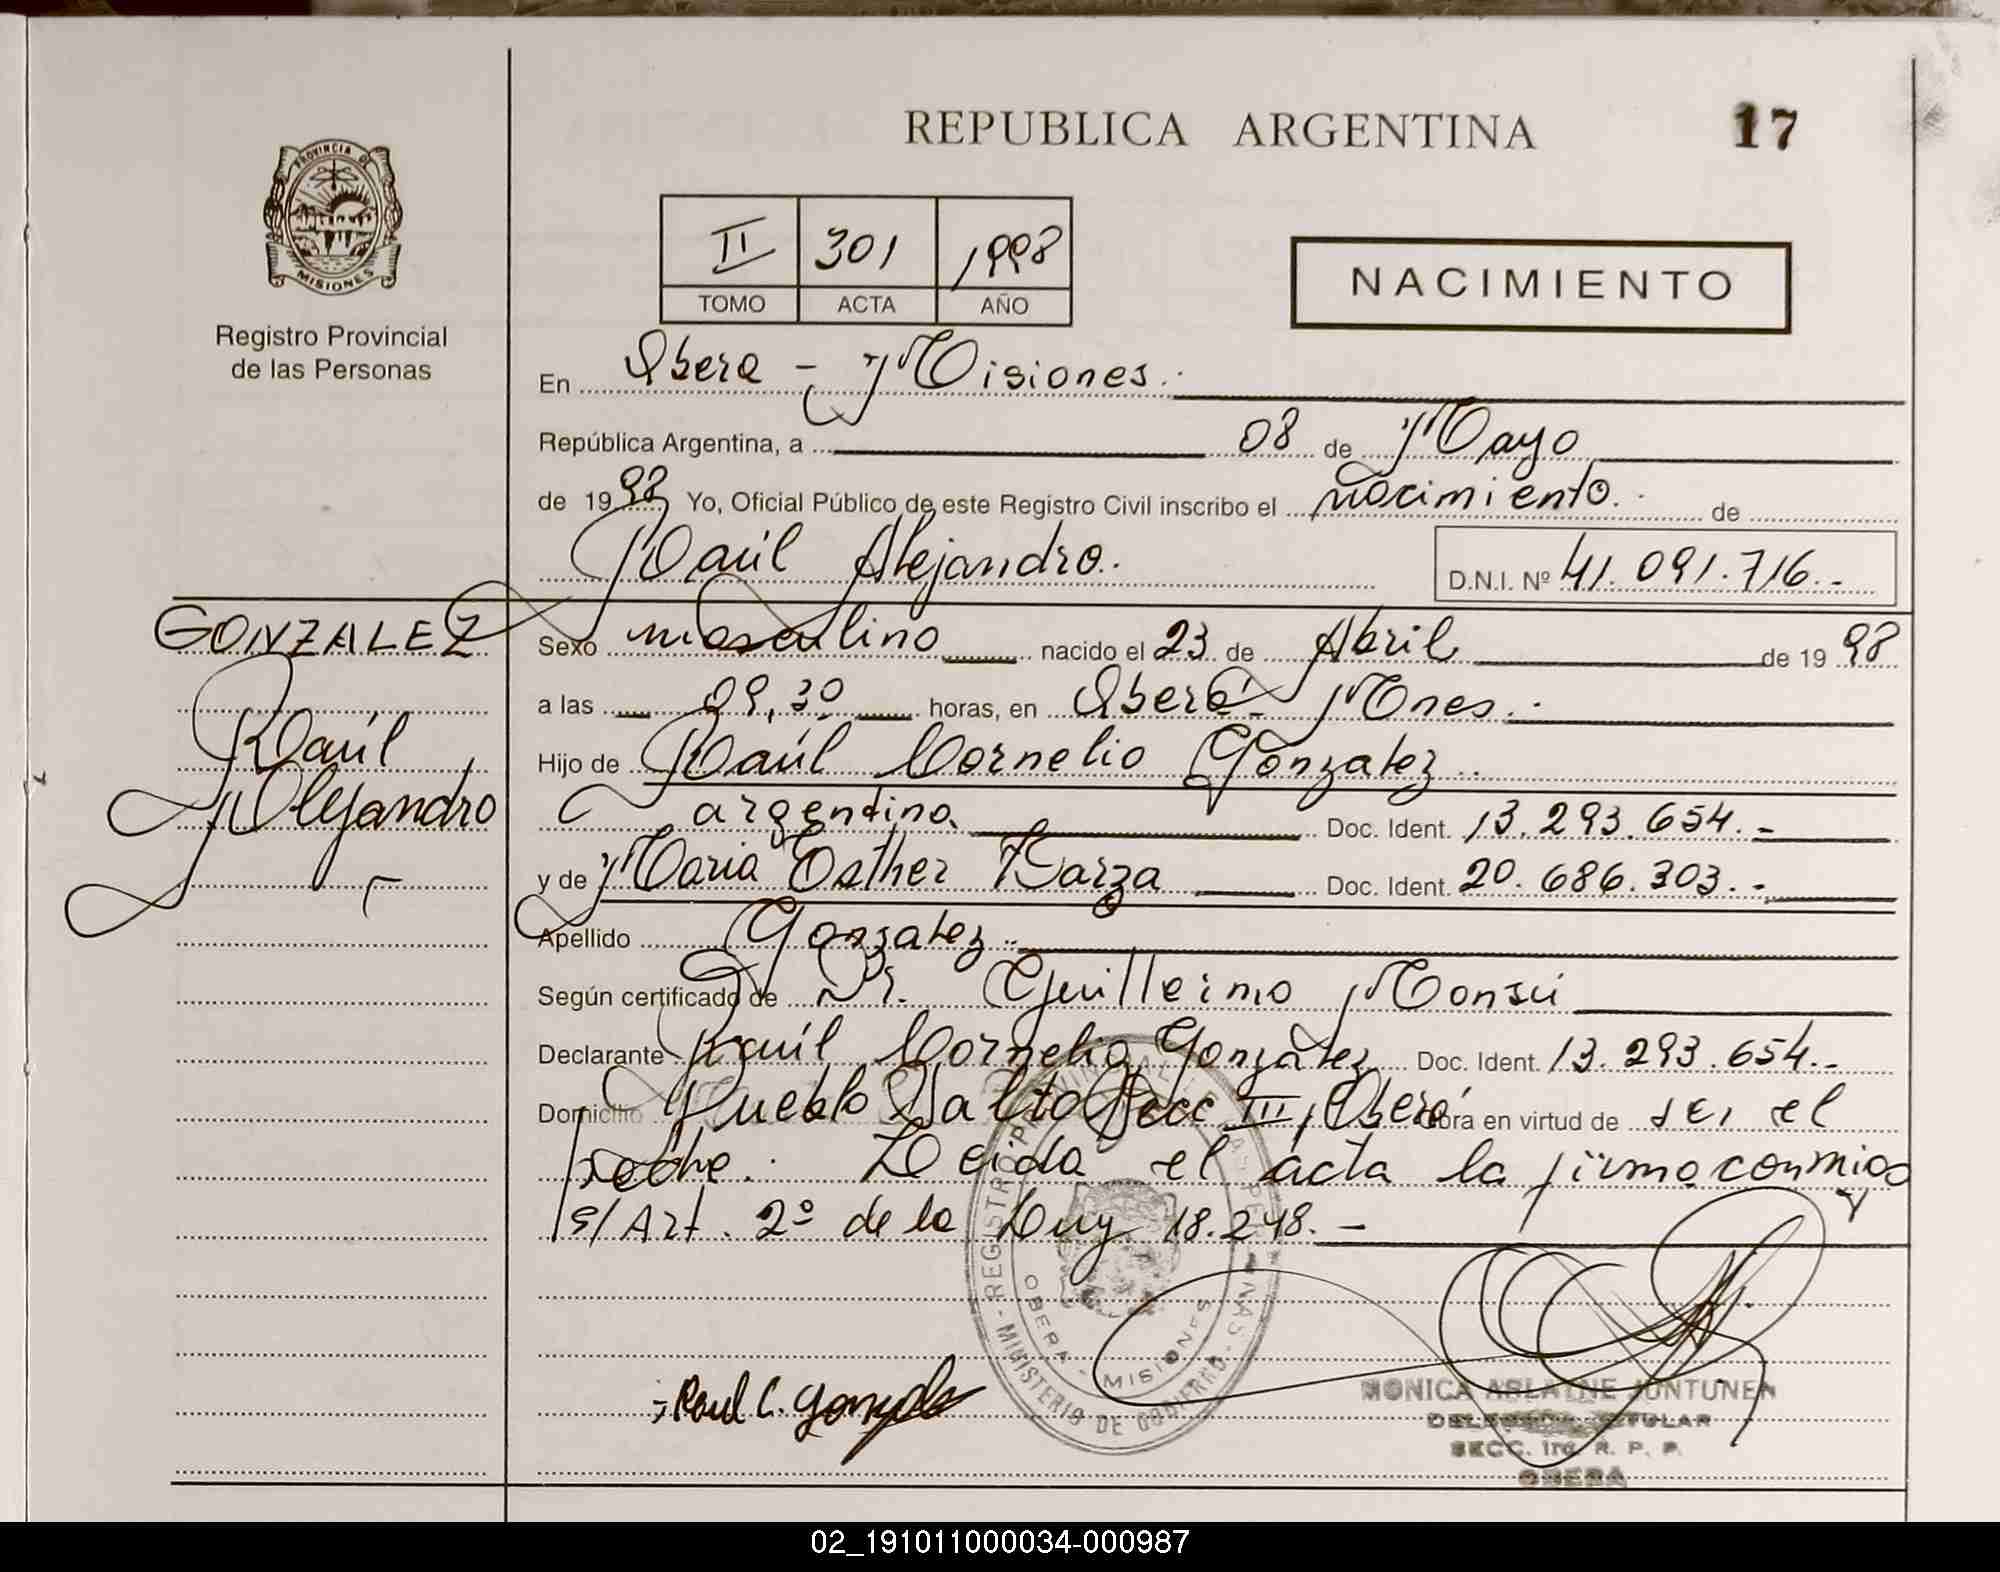 REPUBLICA ARGENTINA
17
PROVINCIA DE
MISIONES
Registro Provincial
de las Personas
II 301 1998
TOMO ACTA AÑO
NACIMIENTO
En Oberá - Misiones.
República Argentina, a 08 de Mayo
de 1998 Yo, Oficial Público de este Registro Civil inscribo el nacimiento. de
Raúl Alejandro. D.N.I. Nº 41.091.716.-
GONZALEZ
Raúl
Alejandro
Sexo masculino nacido el 23 de Abril de 1998
a las 09,30 horas, en Oberá - Mnes.
Hijo de Raúl Cornelio Gonzalez
argentino. Doc. Ident. 13.293.654.-
y de Maria Esther Barza Doc. Ident. 20.686.303.-
Apellido Gonzalez.
Según certificado de Dr. Guillermo Monsú
Declarante Raúl Cornelio González Doc. Ident. 13.293.654.-
Domicilio Pueblo Salto Secc III, Oberá obra en virtud de ser el
padre. Leida el acta la firma conmigo
s/Art. 2º de la Ley 18.248.-
REGISTRO PROVINCIAL DE LAS PERSONAS - MINISTERIO DE GOBIERNO -
OBERA - MISIONES
Raul C. Gonzalez
MONICA ARLAYNE JUNTUNEN
DELEGADA TITULAR
SECC. 1ra. R. P. P.
OBERA
02_191011000034-000987